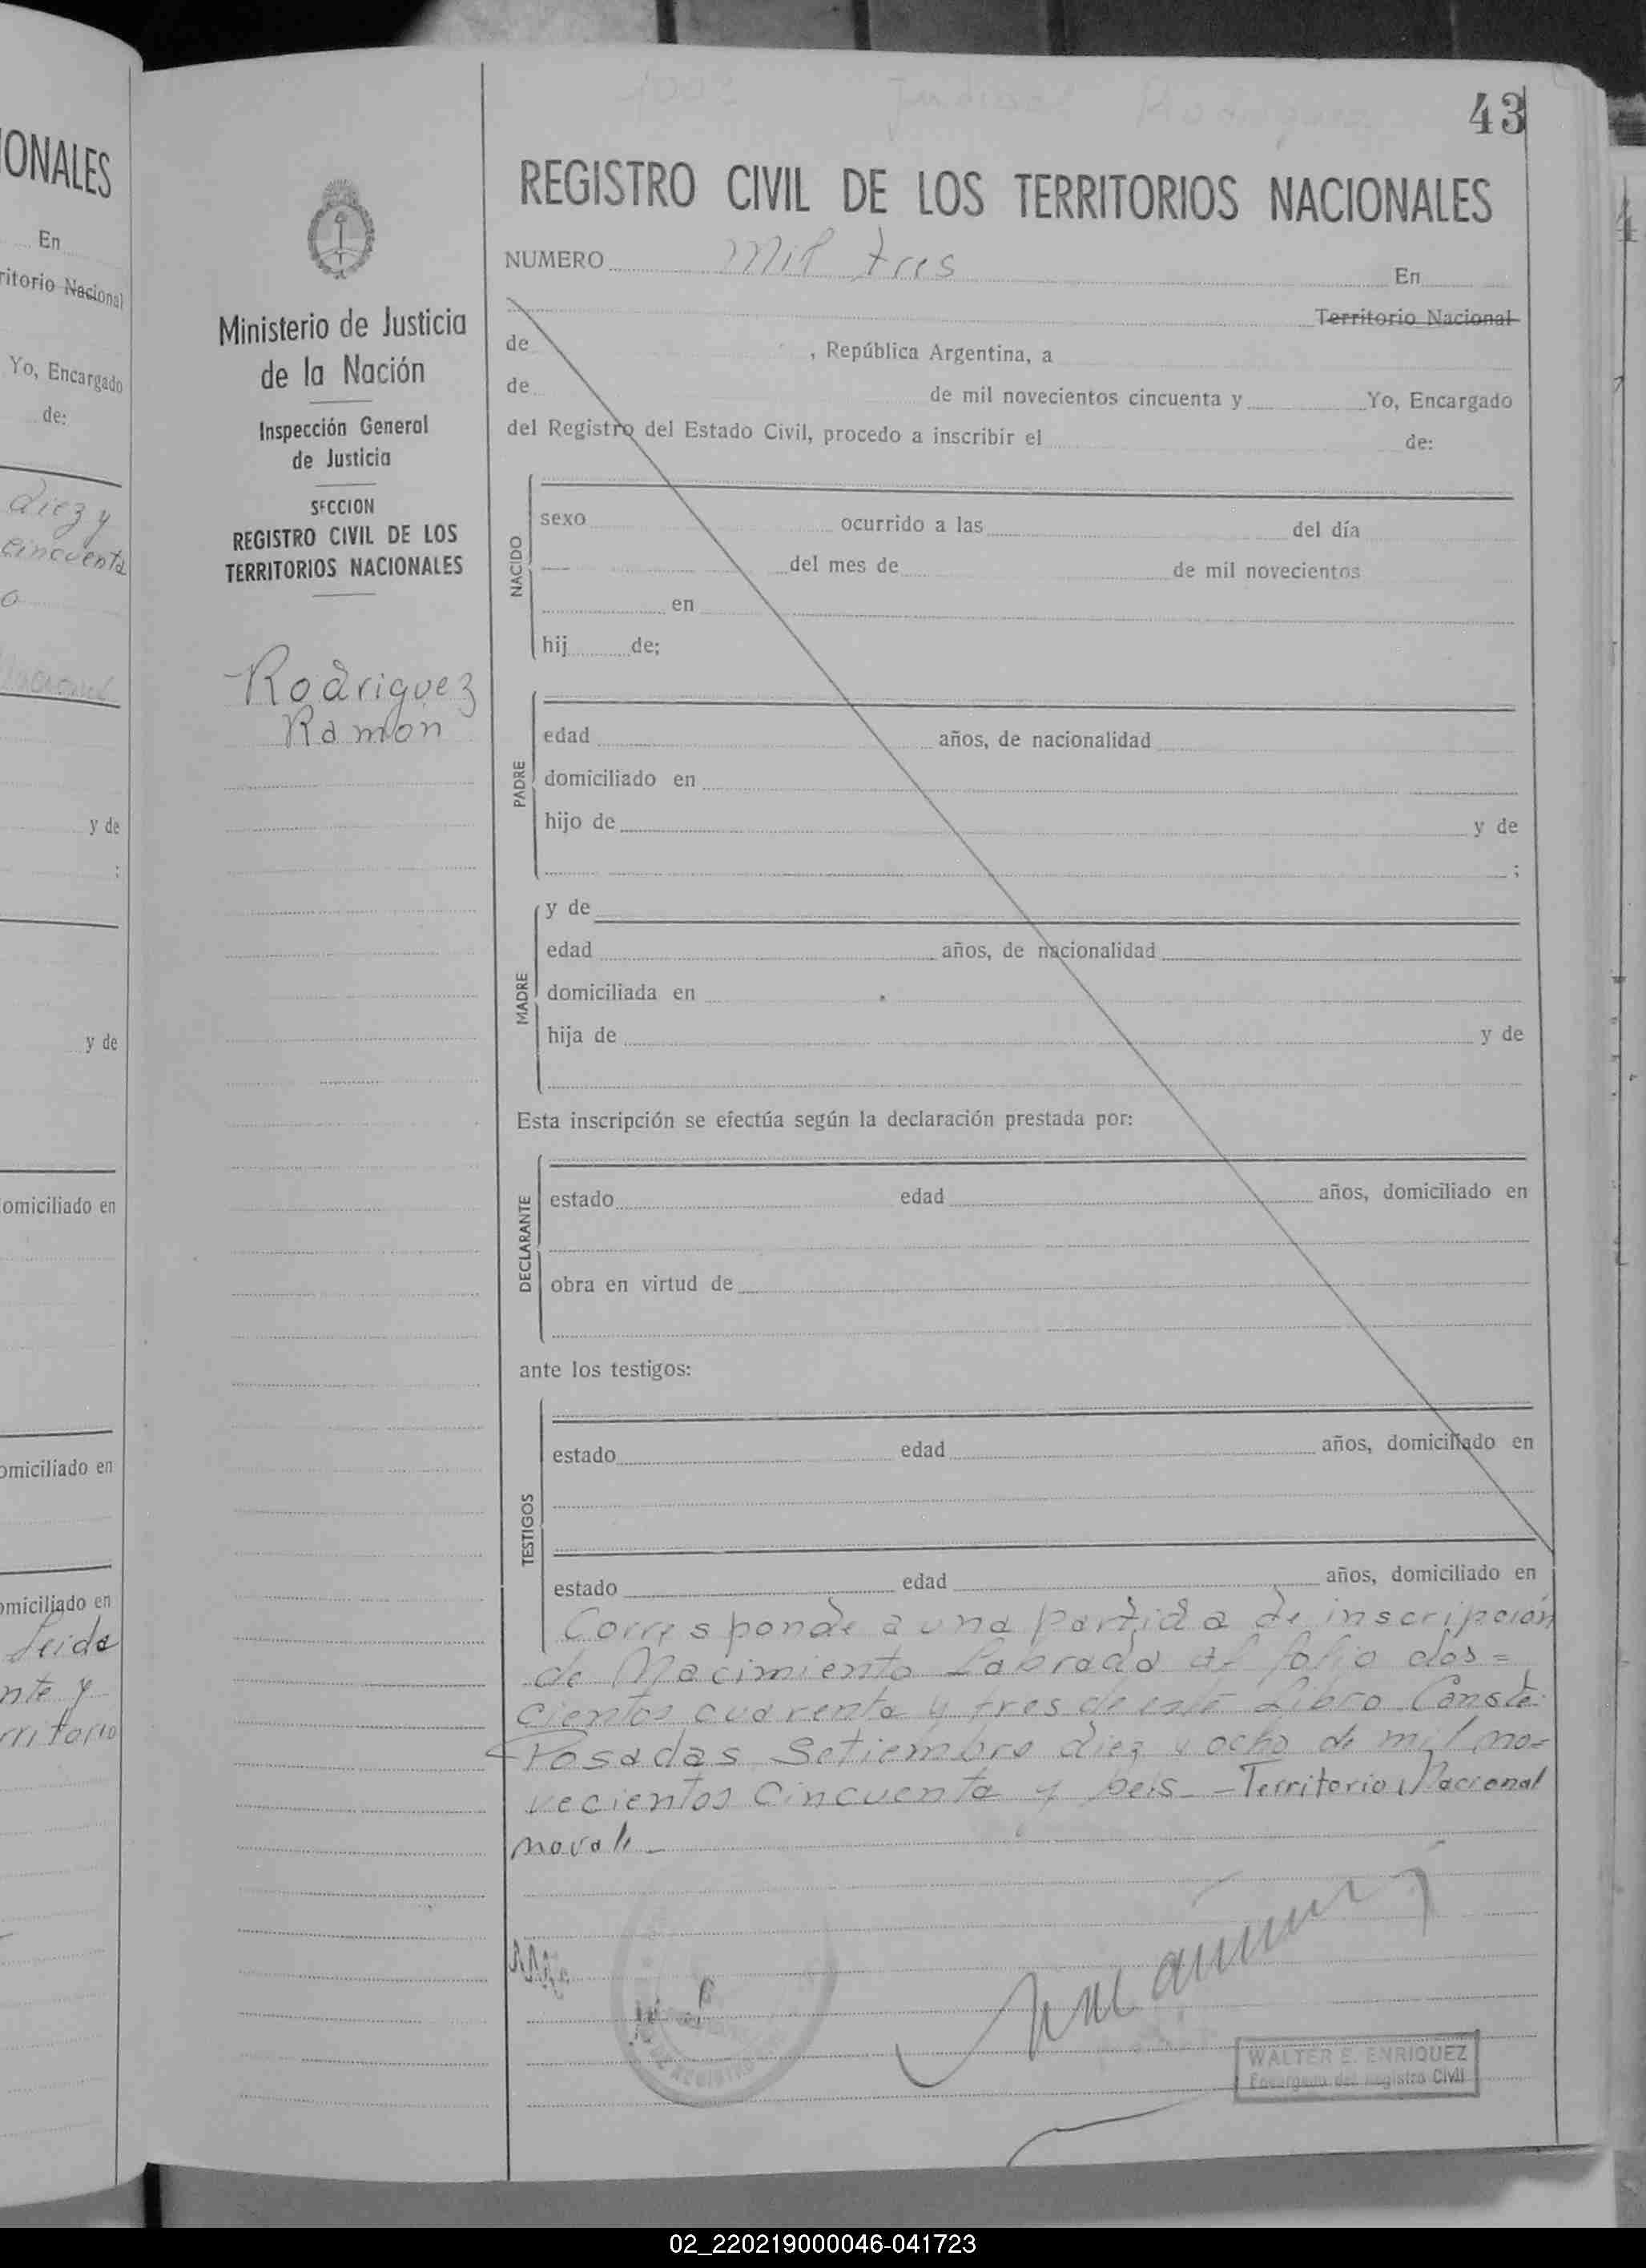 ONALES
En
ritorio Nacional
Yo, Encargado
de:
diez y
cincuenta
o
y de
:
y de
omiciliado en
omiciliado en
omiciliado en
Leida
nte y
rritorio
Ministerio de Justicia
de la Nación
Inspección General
de Justicia
SECCION
REGISTRO CIVIL DE LOS
TERRITORIOS NACIONALES
Rodriguez
Ramón
1003 Rodriguez
43
REGISTRO CIVIL DE LOS TERRITORIOS NACIONALES
NUMERO mil tres En
Territorio Nacional
de , República Argentina, a
de de mil novecientos cincuenta y Yo, Encargado
del Registro del Estado Civil, procedo a inscribir el de:
NACIDO
sexo ocurrido a las del día
del mes de de mil novecientos
en
hij de;
PADRE
edad años, de nacionalidad
domiciliado en
hijo de y de
;
MADRE
y de
edad años, de nacionalidad
domiciliada en
hija de y de
Esta inscripción se efectúa según la declaración prestada por:
DECLARANTE
estado edad años, domiciliado en
obra en virtud de
ante los testigos:
TESTIGOS
estado edad años, domiciliado en
estado edad años, domiciliado en
Corresponde a una partida de inscripción
de Nacimiento Labrada al folio dos=
cientos cuarenta y tres de este Libro Conste.
Posadas Setiembre diez y ocho de mil no=
vecientos Cincuenta y seis - Territorio Nacional
no vale
WALTER E. ENRIQUEZ
Encargado del Registro Civil
02_220219000046-041723